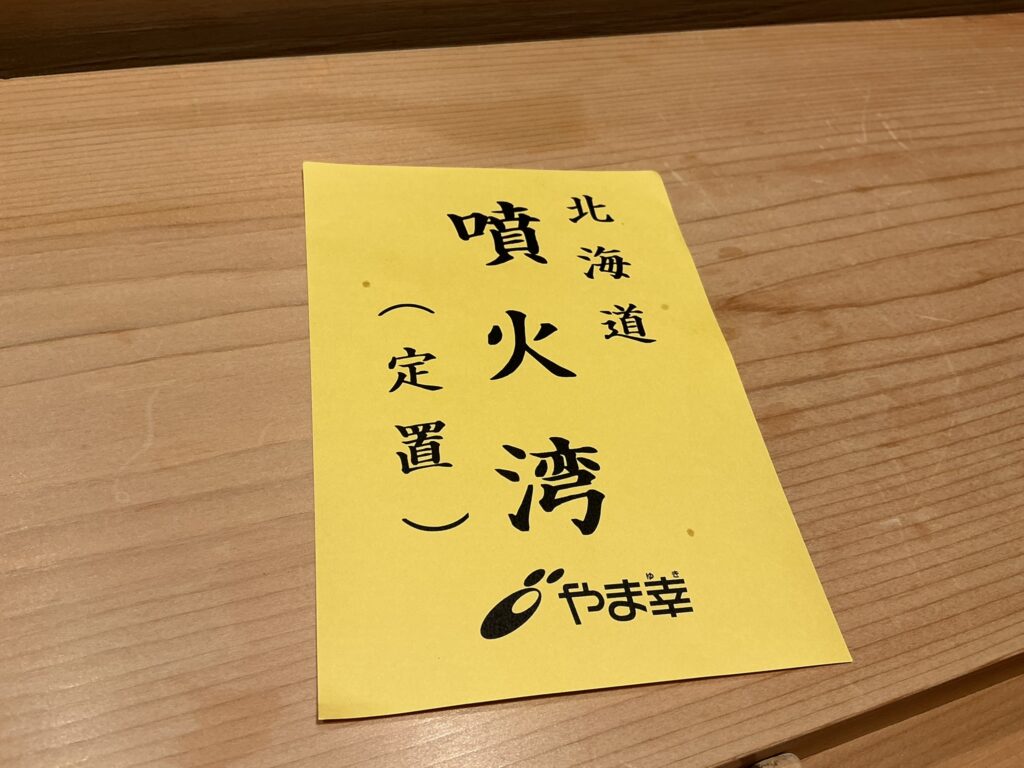 北海道
噴火湾
（定置）
やま幸
ゆき